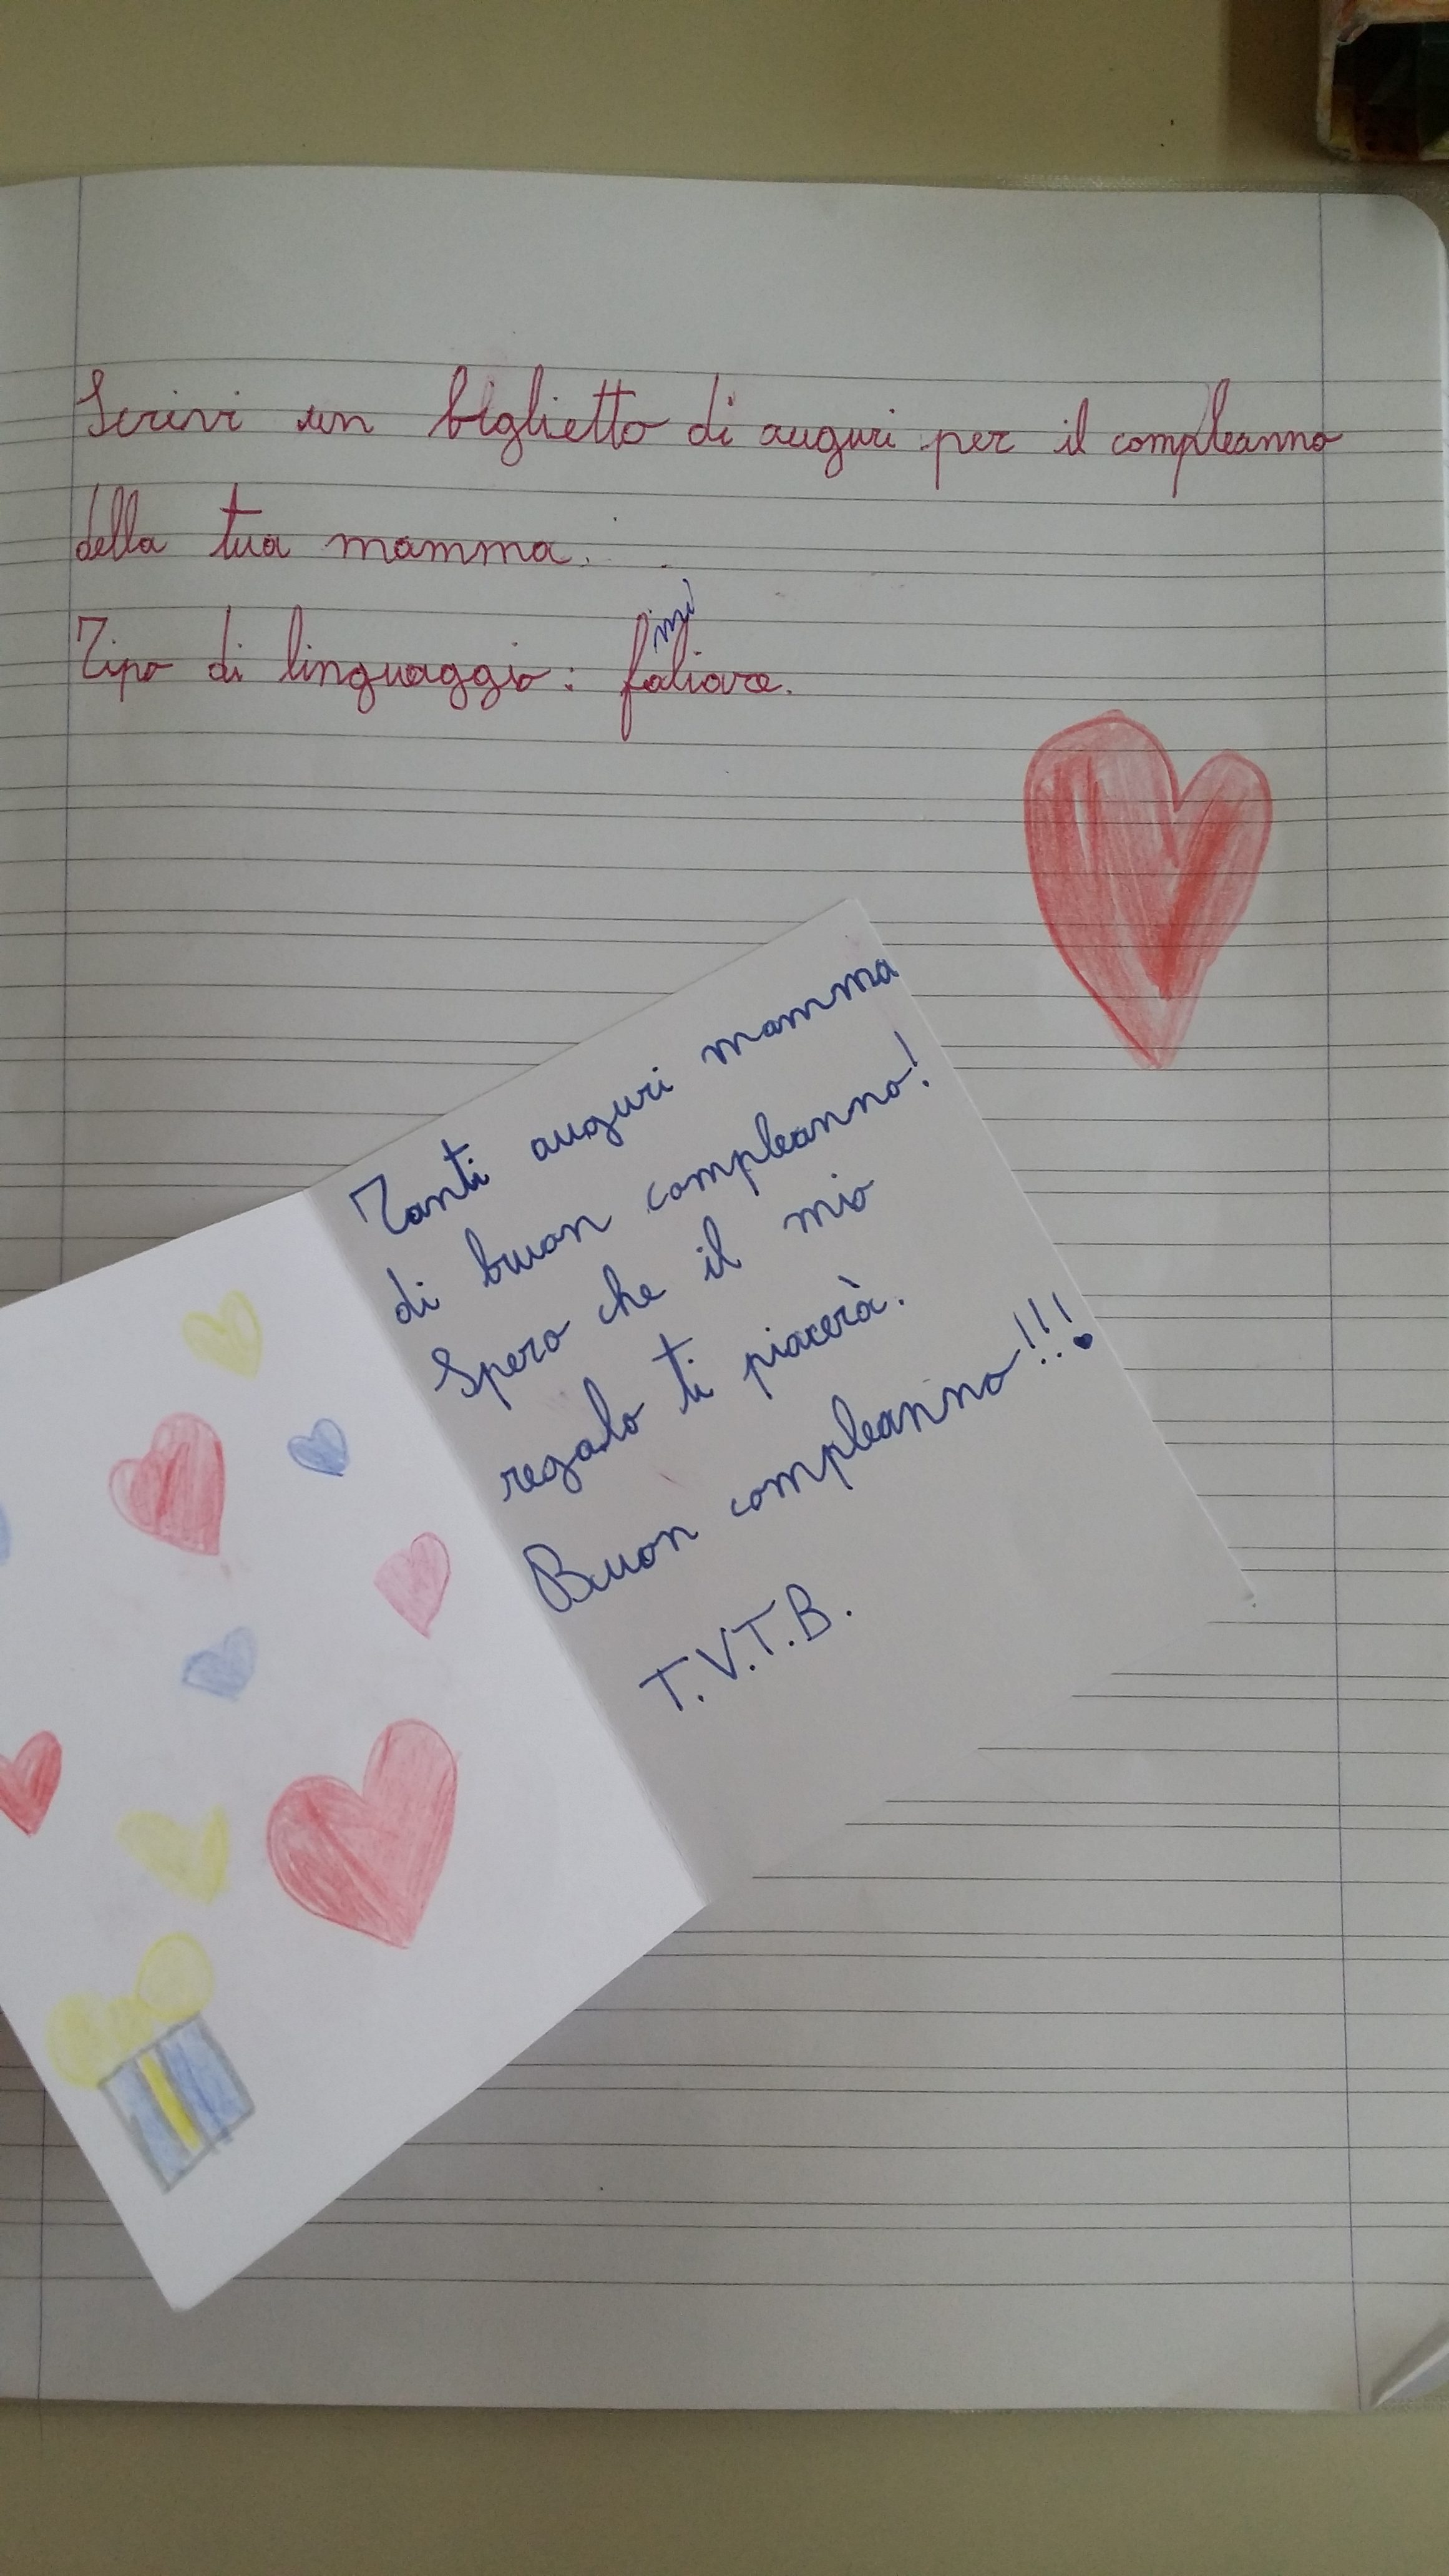 Scrivi un biglietto di auguri per il compleanno
della tua mamma.
mi
Tipo di linguaggio: faliare.
Tanti auguri mamma
di buon compleanno!
Spero che il mio
regalo ti piacerà.
Buon compleanno!!!
T.V.T.B.